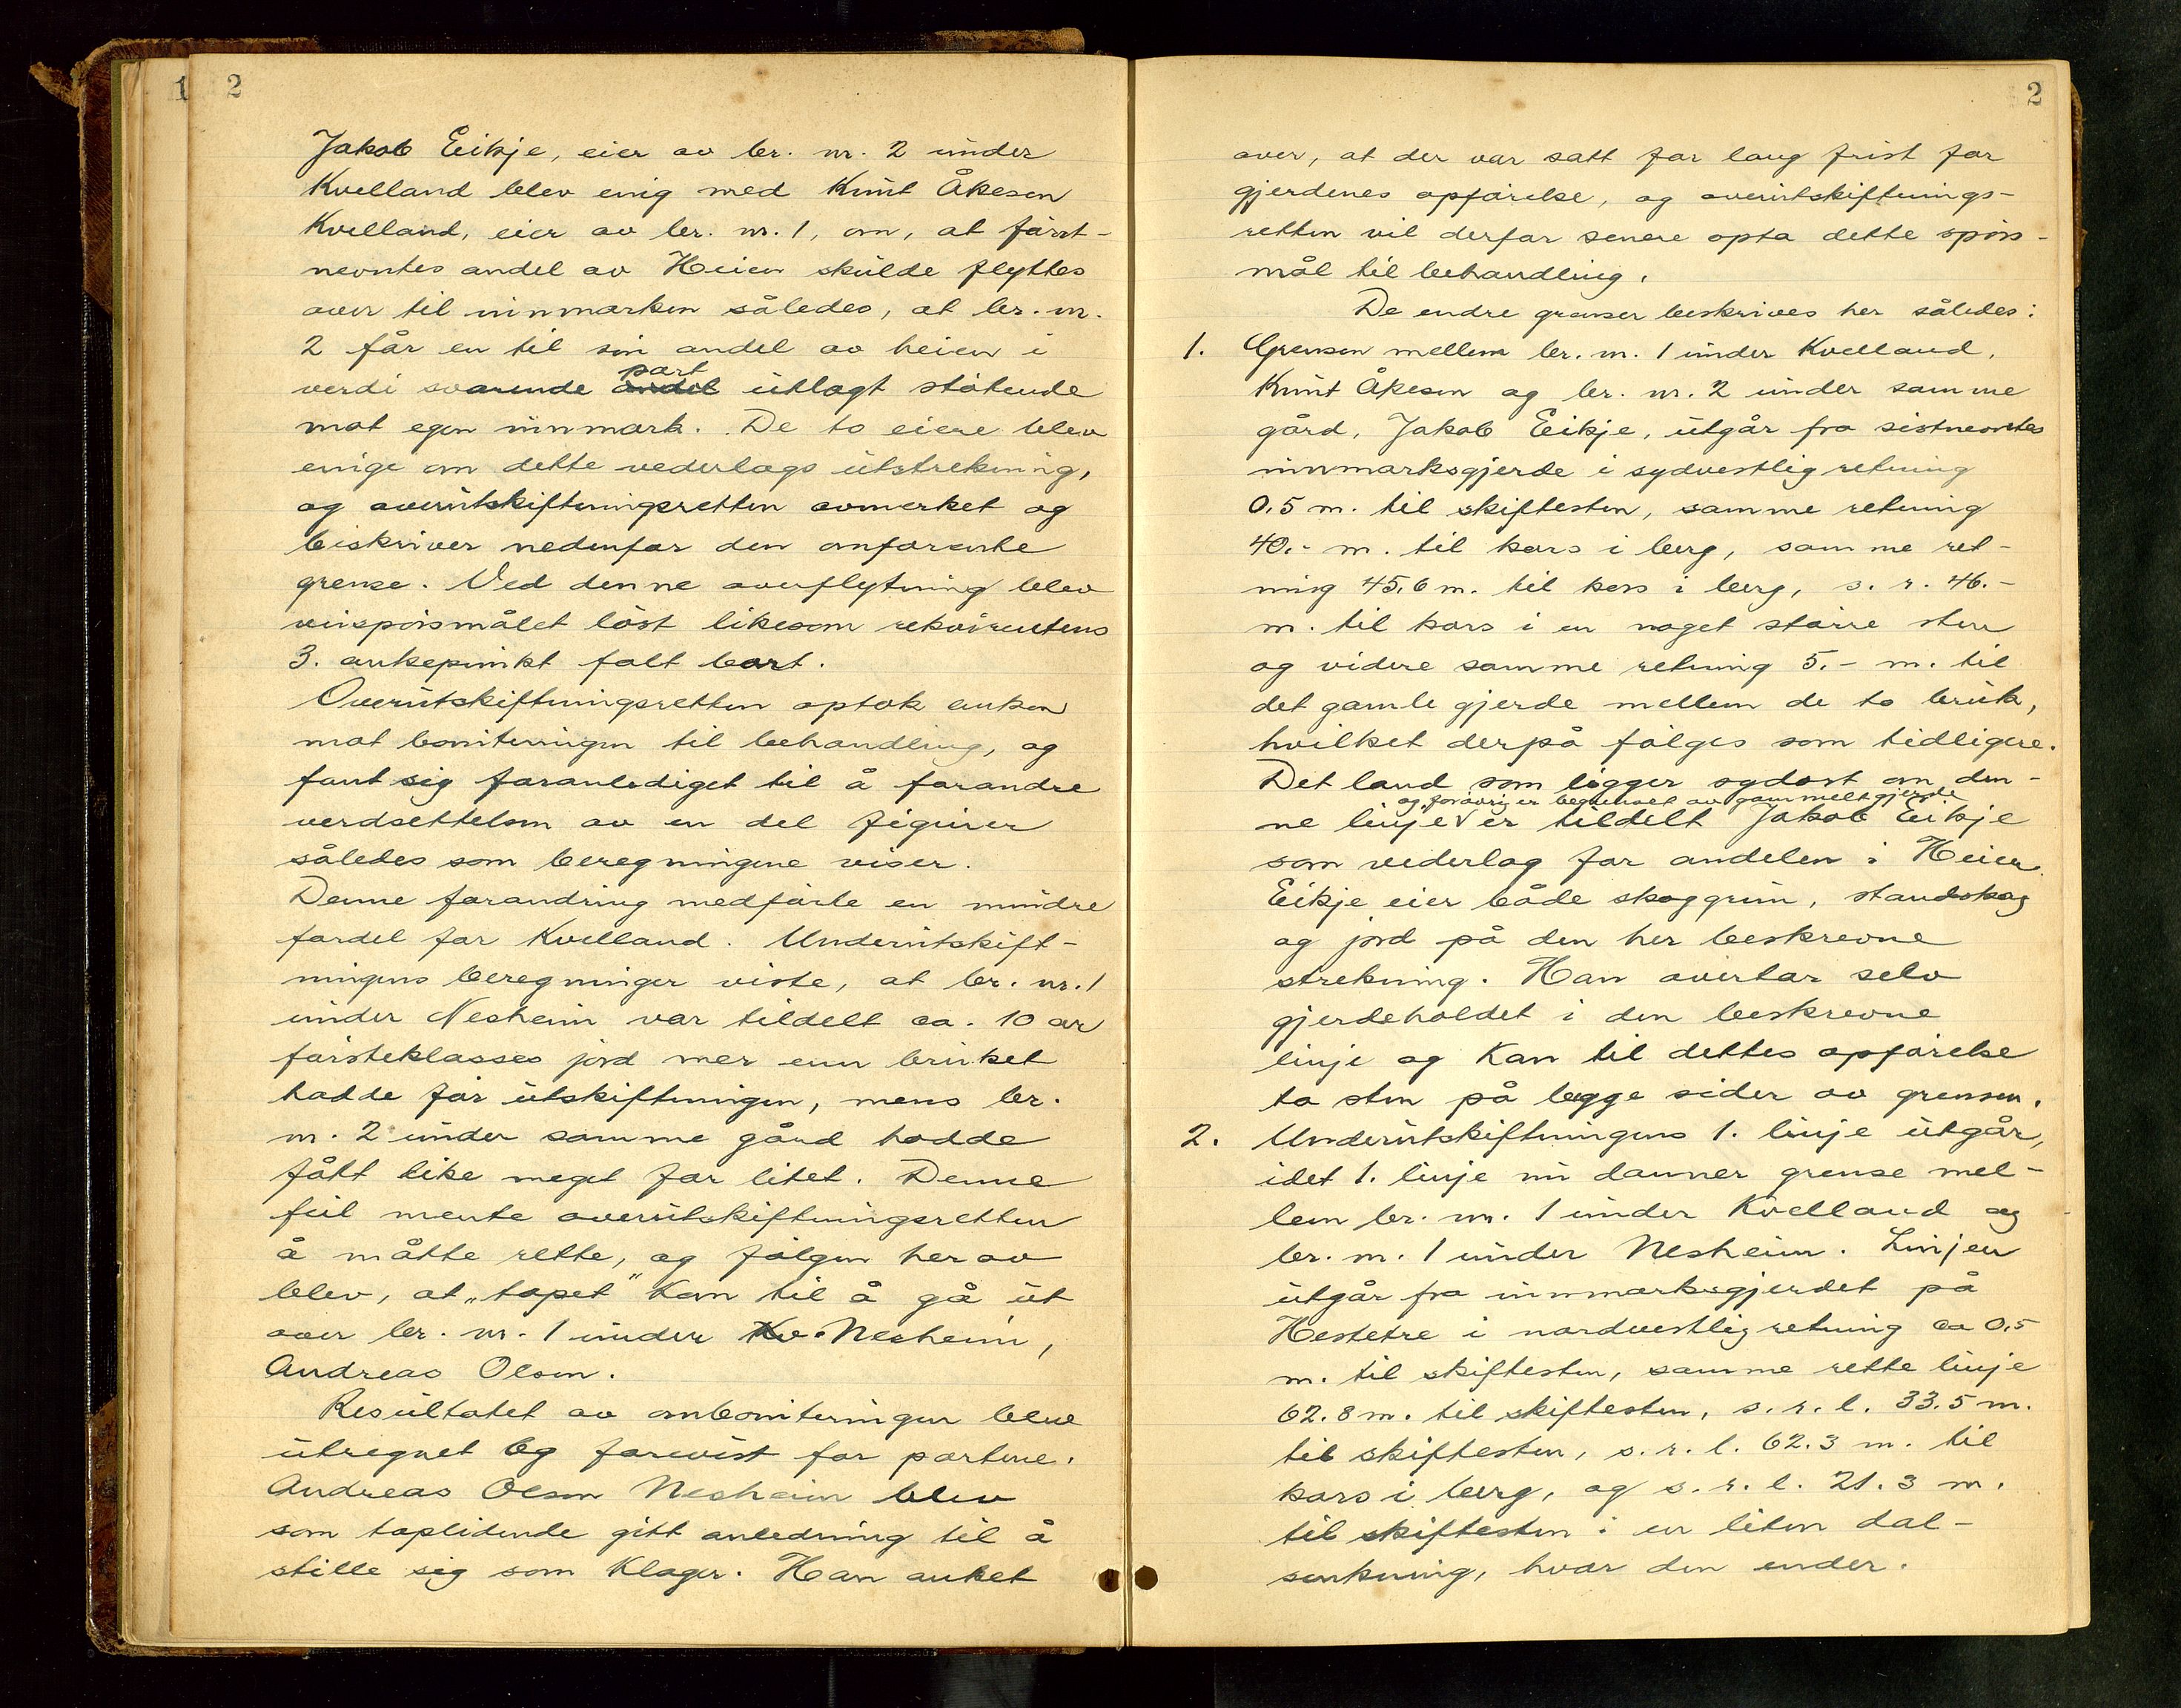 1 2
Jakob Eikje, eier av br. nr. 2 under
Kvelland blev enig med Knut Åkesen
Kvelland, eier av br. nr. 1, om, at først-
nevntes andel av Heien skulde flyttes
over til innmarken således, at br. nr.
2 får en til sin andel av heien i
verdi svarende andel part utlagt støtende
mot egen innmark. De to eiere blev
enige om dette vederlags utstrekning,
og overutskiftningsretten avmerket og
beskriver nedenfor den omforente
grense. Ved denne overflytning blev
veispørsmålet løst likesom rekvirentens
3. ankepunkt falt bort.
Overutskiftningsretten optok anken
mot boniteringen til behandling, og
fant sig foranlediget til å forandre
verdsettelsen av en del figurer
således som beregningene viser.
Denne forandring medførte en mindre
fordel for Kvelland. Underutskift-
ningens beregninger viste, at br. nr. 1
under Nesheim var tildelt ca. 10 ar
førsteklasses jord mer enn bruket
hadde før utskiftningen, mens br.
nr. 2 under samme gård hadde
fått like meget for litet. Denne
feil mente overutskiftningsretten
å måtte rette, og følgen herav
blev, at „tapet" kom til å gå ut
over br. nr. 1 under Kv. Nesheim,
Andreas Olsen.
Resultatet av omboniteringen blev
utregnet og forevist for partene.
Andreas Olsen Nesheim blev
som taplidende gitt anledning til å
stille sig som Klager. Han anket
2
over, at der var satt for lang frist for
gjerdenes opførelse, og overutskiftnings-
retten vil derfor senere opta dette spørs-
mål til behandling.
De endre grenser beskrives her således:
1. Grensen mellem br. nr. 1 under Kvelland,
Knut Åkesen og br. nr. 2 under samme
gård, Jakob Eikje, utgår fra sistnevntes
innmarksgjerde i sydvestlig retning
0.5 m. til skiftesten, samme retning
40.- m. til kors i berg, samme ret-
ning 45.6 m. til kors i berg, s. r. 46.-
m. til kors i en noget større sten
og videre samme retning 5.- m. til
det gamle gjerde mellem de to bruk,
hvilket derpå følges som tidligere.
Det land som ligger sydøst om den-
og forøvrig er begrenset av gammelt gjerde
ne linje er tildelt Jakob Eikje
som vederlag for andelen i Heien.
Eikje eier både skoggrun, standskog
og jord på den her beskrevne
strekning. Han overtar selv
gjerdeholdet i den beskrevne
linje og kan til dettes opførelse
ta sten på begge sider av grensen.
2. Underutskiftningens 1. linje utgår,
idet 1. linje nu danner grense mel-
lem br. nr. 1 under Kvelland og
br. nr. 1 under Nesheim. Linjen
utgår fra innmarksgjerdet på
Hestetre i nordvestlig retning ca 0.5
m. til skiftesten, samme rette linje
62.8 m. til skiftesten, s. r. l. 33.5 m.
til skiftesten, s. r. l. 62.3 m. til
kors i berg, og s. r. l. 21.3 m.
til skiftesten i en liten dal-
senkning, hvor den ender.